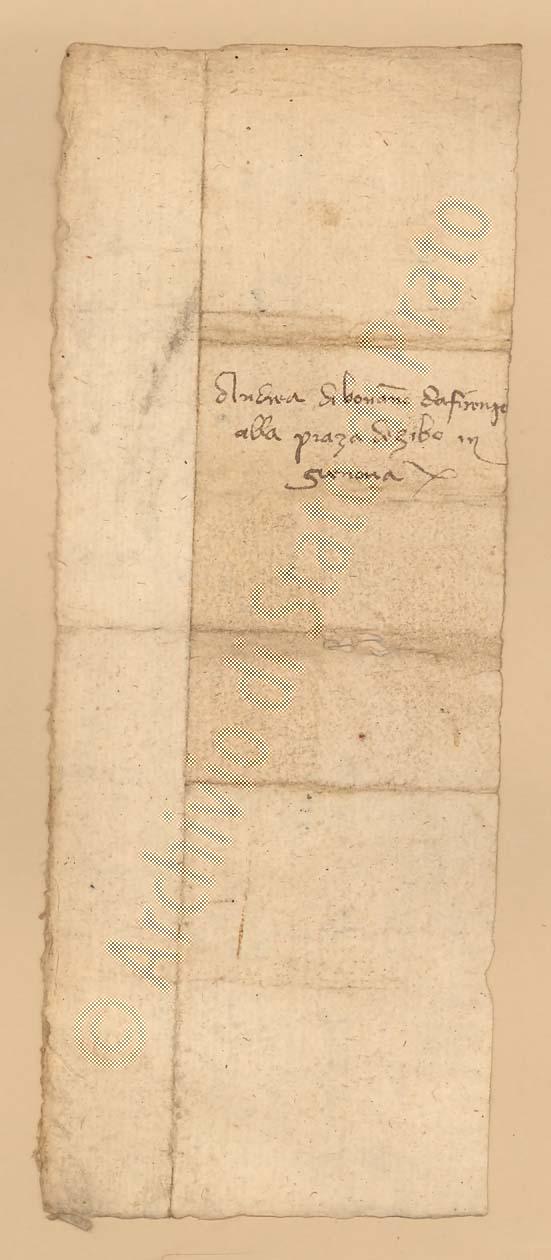 Andrea di bonano da firenze
alla piaza de zibo in
Genova
© Archivio di Stato di Prato